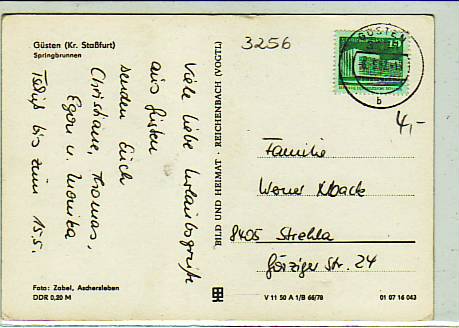 Güsten (Kr. Staßfurt)
Springbrunnen
Viele liebe Urlaubsgrüße
aus Güsten
senden Euch
Christiane, Thomas,
Egon u. Monika
bis zum 15.5.
Foto: Zobel, Aschersleben
DDR 0,20 M
BILD UND HEIMAT · REICHENBACH (VOGTL.)
3256
GÜSTEN
b
4,-
Familie
Werner
8405 Strehla
Görziger Str. 24
V 11 50 A 1/B 66/78
01 07 16 043